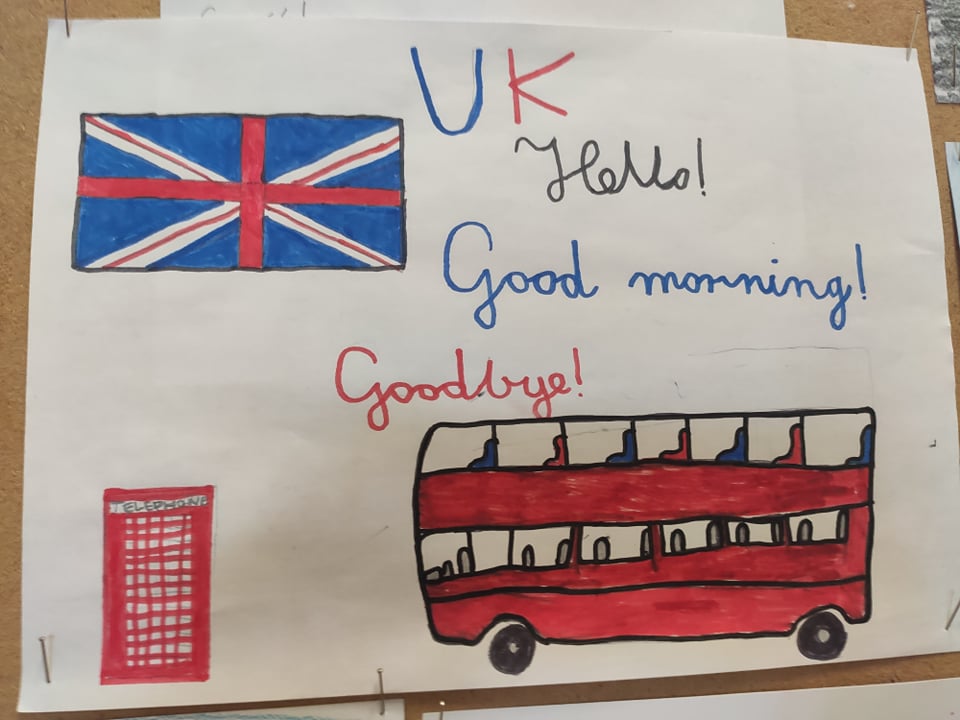 UK
Hello!
Good morning!
Goodbye!
TELEPHONE